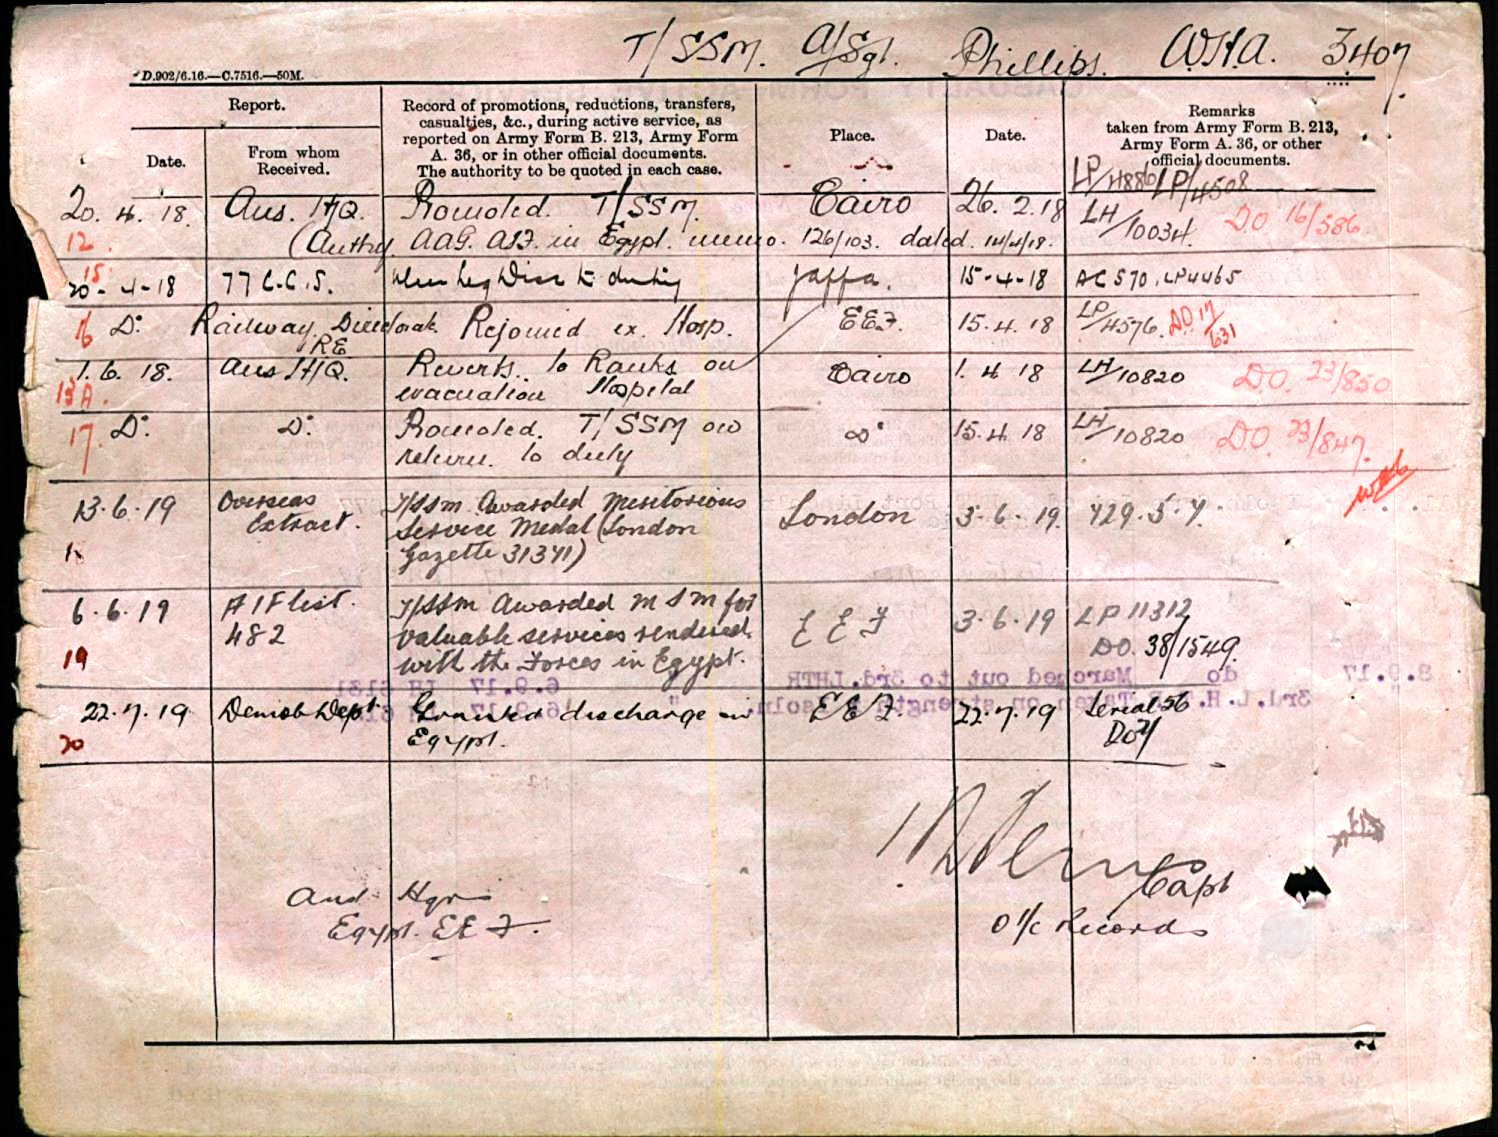 T/SSM. A/Sgt. Phillips. W.H.A. 3407
D.902/6.16.—C.7516.—50M.
Report.
Date.
From whom
Received.
Record of promotions, reductions, transfers,
casualties, &c., during active service, as
reported on Army Form B. 213, Army Form
A. 36, or in other official documents.
The authority to be quoted in each case.
Place.
Date.
Remarks
taken from Army Form B. 213,
Army Form A. 36, or other
official documents.
LP/4886 LP/4508
20. 4. 18. Aus. H/Q. Promoted. T/SSM. Cairo 26. 2. 18 LH/10034. DO 16/586
12. (Authy AAG. AIF. in Egypt. memo. 126/103. dated. 14/4/18.
15
20-4-18 77 C.C.S. to duty Jaffa. 15-4-18 AC 570. LP4465
16 Do Railway Directorate Rejoined ex. Hosp. EEF. 15. 4. 18 LP/4576. DO 17/631
RE
1. 6. 18. Aus H/Q. Reverts. to Ranks on Cairo 1. 4 18 LH/10820 DO. 23/850
13A. evacuation Hospital
17. Do. Do. Promoted. T/SSM on Do 15. 4. 18 LH/10820 DO. 23/847.
return. to duty
13.6.19 Overseas T/SSM Awarded Meritorious London 3.6.19. 429.5.7.
Extract. Service Medal (London
18 Gazette 31371)
6.6.19 AIF list. T/SSM Awarded MSM for EEF 3.6.19 LP 11312
482 valuable services rendered DO. 38/1549.
19 with the Forces in Egypt.
8.9.17 do Marched out to 3rd.LHTR 6.9.17 LH 6131
3rd.L.H.T.R. Taken on strength
22.7.19 Demob Dept Granted discharge in EEF. 22.7.19 Serial 56
20 Egypt. DO 71
Capt
Aust Hqrs
Egypt. EEF. O i/c Records